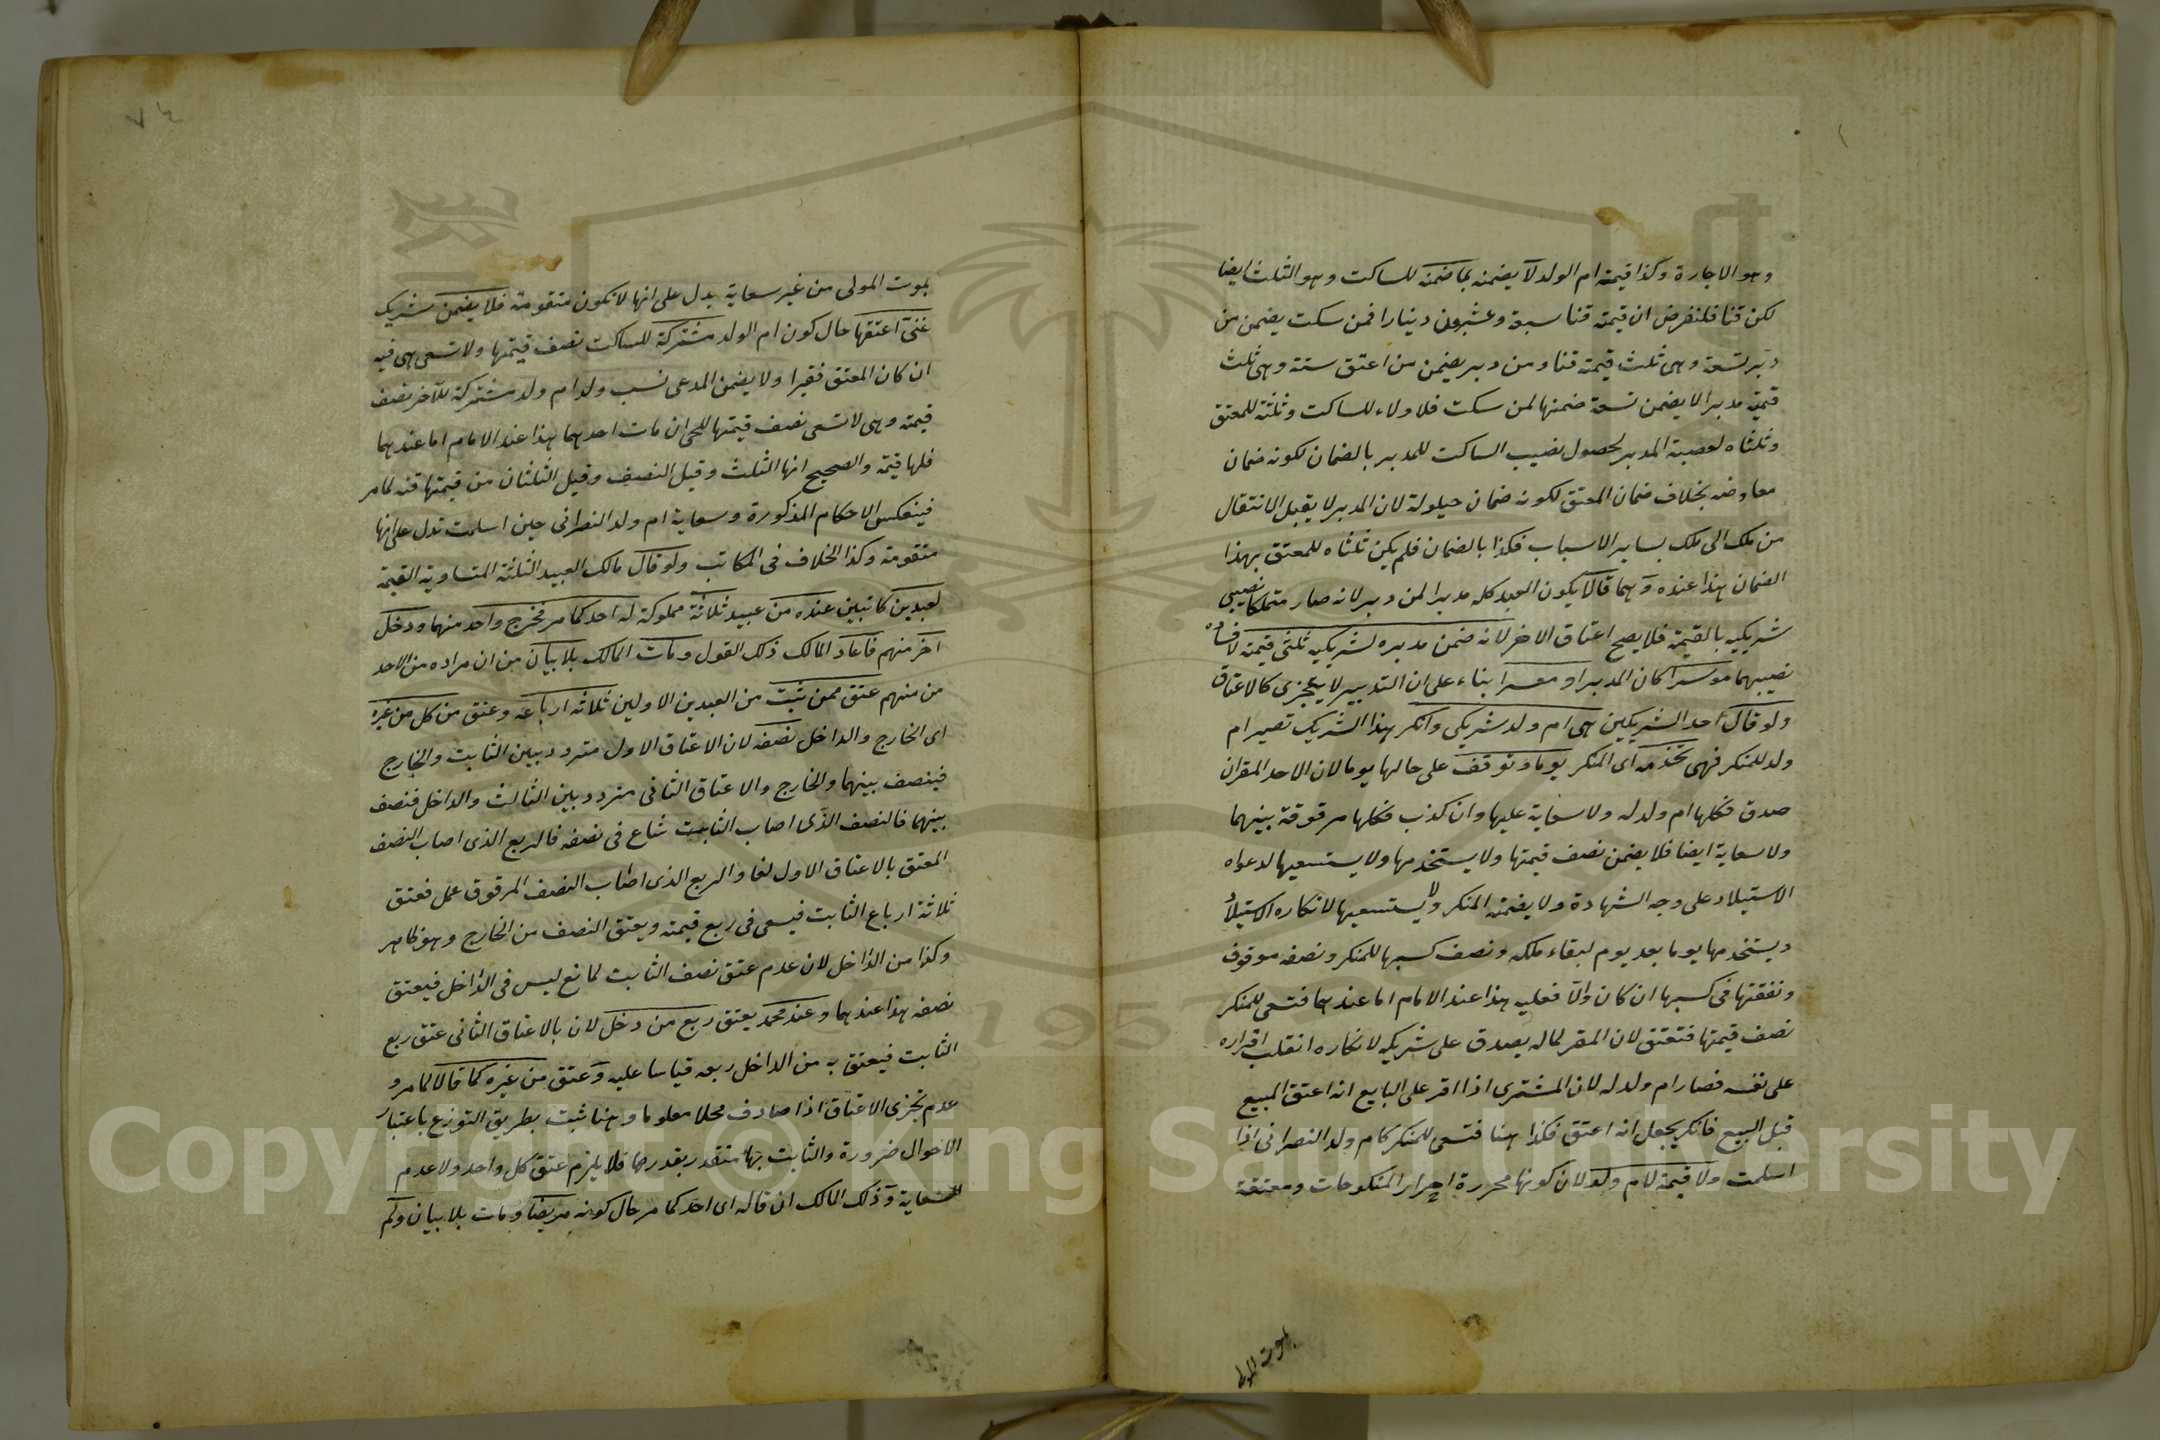 وهو الاجارة وكذا قيمة ام الولد لا يضمنه بما ضمنه للساكت وهو الثلث ايضا
لكن قنا فلنفرض ان قيمته قنا سبعة وعشرون دينارا فمن سكت يضمن من
دبر تسعة وهى ثلث قيمته قنا ومن دبر يضمن من اعتق ستة وهى ثلث
قيمته مدبرا لا يضمن تسعة ضمنها لمن سكت فلا ولاء للساكت وثلثه للمعتق
وثلثاه لعصبة المدبر لحصول نصيب الساكت للمدبر بالضمان لكونه ضمان
معاوضه بخلاف ضمان المعتق لكونه ضمان حيلولة لان المدبر لا يقبل الانتقال
من ملك الى ملك بساير الاسباب فكذا بالضمان فلم يكن ثلثاه للمعتق بهذا
الضمان هذا عنده وهما قالا يكون العبد كله مدبرا لمن دبر لانه صار متملكا نصيبى
شريكيه بالقيمة فلا يصح اعتاق الاخر لانه ضمن مدبره لشريكيه ثلثى قيمته لافساده
نصيبهما موسرا كان المدبر او معسرا بناء على ان التدبير لا يتجزى كالاعتاق
ولو قال احد الشريكين هى ام ولد شريكى وانكر هذا الشريك تصير ام
ولد للمنكر فهى تخدمه اى المنكر يوما وتوقف على حالها يوما لان الاحد المقر ان
صدق فكلها ام ولد له ولا سعاية عليها وان كذب فكلها مرقوقة بينهما
ولا سعاية ايضا فلا يضمن نصف قيمتها ولا يستخدمها ولا يستسعيها لدعواه
الاستيلاد على وجه الشهادة ولا يضمنه المنكر ولا يستسعيها لانكاره الاستيلاد
ويستخدمها يوما بعد يوم لبقاء ملكه ونصف كسبها للمنكر ونصفه موقوف
ونفقتها فى كسبها ان كان والا فعليه هذا عند الامام اما عندهما فتسعى للمنكر
نصف قيمتها فتعتق لان المقر لما لم يصدق على شريكه لانكاره انقلب اقراره
على نفسه فصار ام ولد له لان المشترى اذا اقر على البايع انه اعتق المبيع
قبل البيع فانكر يجعل انه اعتق فكذا هنا فتسعى للمنكر كام ولد النصرانى اذا
اسلمت ولا قيمة لام ولد لان كونها محررة احرار المنكوحات ومعتقة
بموت المو
٧٤
بموت المولى من غير سعاية يدل على انها لا تكون متقومة فلا يضمن شريك
غنى اعتقها حال كون ام الولد مشتركة للساكت نصف قيمتها ولا تسعى هى فيه
ان كان المعتق فقيرا ولا يضمن المدعى نسب ولد ام ولد مشتركة للآخر نصف
قيمته وهى لا تسعى نصف قيمتها للحى ان مات احدهما هذا عند الامام اما عندهما
فلها قيمة والصحيح انها الثلث وقيل النصف وقيل الثلثان من قيمتها قنه لما مر
فينعكس الاحكام المذكورة وسعاية ام ولد النصرانى حين اسلمت تدل على انها
متقومة وكذا الخلاف فى المكاتب ولو قال مالك العبيد الثلثة المتساوية القيمة
لعبدين كائنين عنده من عبيد ثلاثة مملوكة له احدكما حر فخرج واحد منهما ودخل
آخر منهم فاعاد المالك ذلك القول ومات المالك بلا بيان من ان مراده من الاحد
من منهم عتق ممن ثبت من العبدين الاولين ثلاثة ارباعه وعتق من كل من غيره
اى الخارج والداخل نصفه لان الاعتاق الاول متردد بين الثابت والخارج
فينصف بينهما والخارج والاعتاق الثانى متردد بين الثالث والداخل فنصف
بينهما فالنصف الذى اصاب الثابت شاع فى نصفه فالربع الذى اصاب النصف
المعتق بالاعتاق الاول لغا والربع الذى اصاب النصف المرقوق عمل فعتق
ثلاثة ارباع الثابت فيسعى فى ربع قيمته ويعتق النصف من الخارج وهو ظاهر
وكذا من الداخل لان عدم عتق نصف الثابت لمانع ليس فى الداخل فيعتق
نصفه هذا عندهما وعند محمد يعتق ربع من دخل لان بالاعتاق الثانى عتق ربع
الثابت فيعتق به من الداخل ربعه قياسا عليه وعتق من غيره كما قالا لما مر و
عدم تجزى الاعتاق اذا صادف محلا معلوما وهنا ثبت بطريق التوزع باعتبار
الاحوال ضرورة والثابت بها متقدر بقدرها فلا يلزم عتق كل واحد ولا عدم
السعاية وذلك المالك ان قاله اى احدكما حر حال كونه مريضا ومات بلا بيان ولم
Copyright © King Saud University
1957